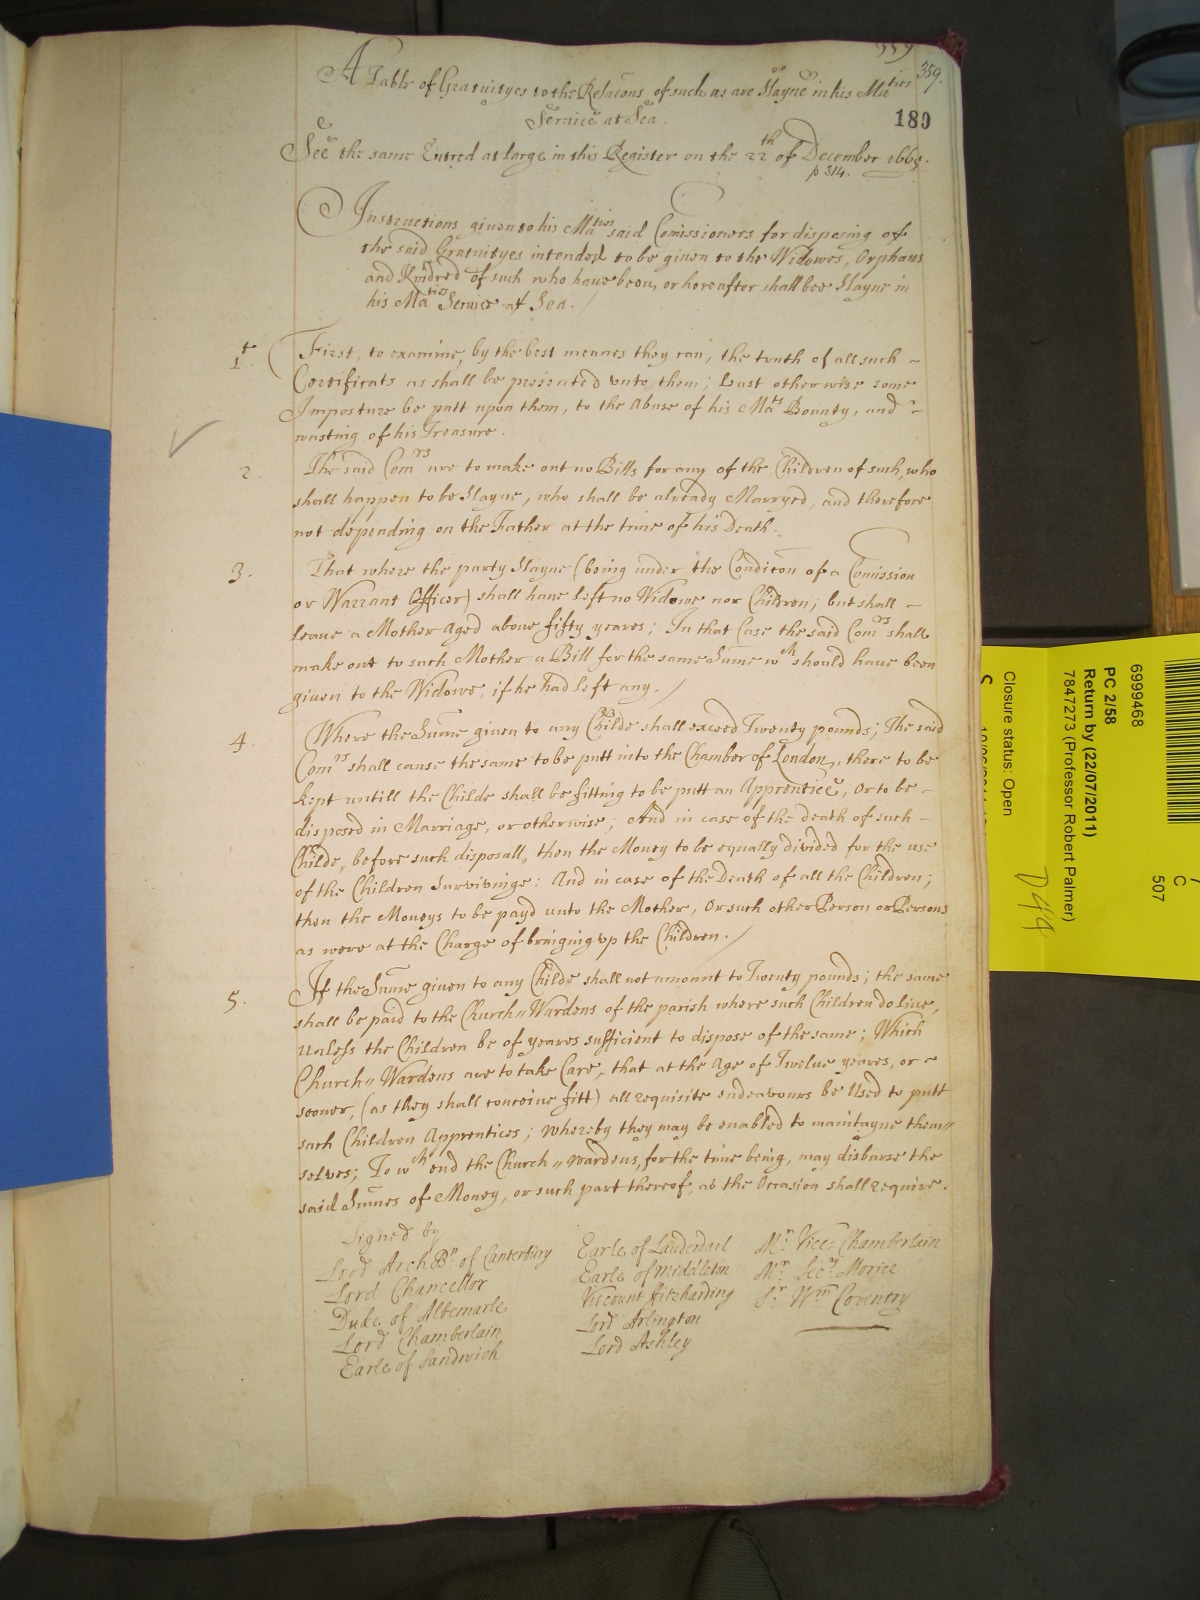 359.
A Table of Gratuityes to the Relacons of such as are Slayne in his Maties
Service at Sea.
189
See the same Entred at large in this Register on the 22th of December 1665.
p 314.
Instructions given to his Maties said Comissioners for disposing of
the said Gratuityes intended to be given to the Widowes, Orphans
and Kindred of such who have been, or hereafter shall bee Slayne in
his Maties Service at Sea.
1t First, to examine, by the best meanes they can, the truth of all such
Certificats as shall be presented unto them; Least otherwise some
Imposture be putt upon them, to the Abuse of his Mats Bounty, and
wasting of his Treasure.
2 The said Comrs are to make out no Bills for any of the Children of such, who
shall happen to be Slayne, who shall be already Marryed, and therefore
not depending on the Father at the time of his Death.
3. That where the party Slayne (being under the Conditon of a Comission
or Warrant Officer) shall have left no Widowe nor Children; but shall
leave a Mother Aged above fifty yeares; In that Case the said Comrs shall
make out to such Mother a Bill for the same Sume wch should have been
given to the Widowe, if he had left any.
4. Where the Sume given to any Childe shall exceed Twenty pounds; The said
Comrs shall cause the same to be putt into the Chamber of London, there to be
kept untill the Childe shall be fitting to be putt an Apprentice, or to be
disposed in Marriage, or otherwise; And in case of the Death of such
Childe, before such disposall, then the Money to be equally divided for the use
of the Children Survivinge: And in case of the Death of all the Children;
then the Moneys to be payd unto the Mother, Or such other Person or Persons
as were at the Charge of bringing up the Children.
5. If the Sume given to any Childe shall not amount to Twenty pounds; the same
shall be paid to the Church=Wardens of the parish where such Children do live,
Unless the Children be of yeares sufficient to dispose of the same; Which
Church=Wardens are to take Care, that at the Age of Twelve yeares, or
sooner, (as they shall conceive fitt) all requisite endeavours be Used to putt
such Children Apprentices; whereby they may be enabled to manitayne them=
selves; To wch end the Church=wardens, for the time being, may disburse the
said Sumes of Money, or such part thereof, as the Occasion shall require.
Signed by
Lord ArchBp of Canterbury
Lord Chancellor
Duke of Albemarle
Lord Chamberlain
Earle of Sandwich
Earle of Lauderdail
Earle of Middleton
Viscount Fitzharding
Lord Arlington
Lord Ashley
Mr Vice=Chamberlain
Mr Secry Morice
Sr Wm Coventry
6999468
PC 2/58
Return by (22/07/2011)
7847273 (Professor Robert Palmer)
Closure status: Open
C
507